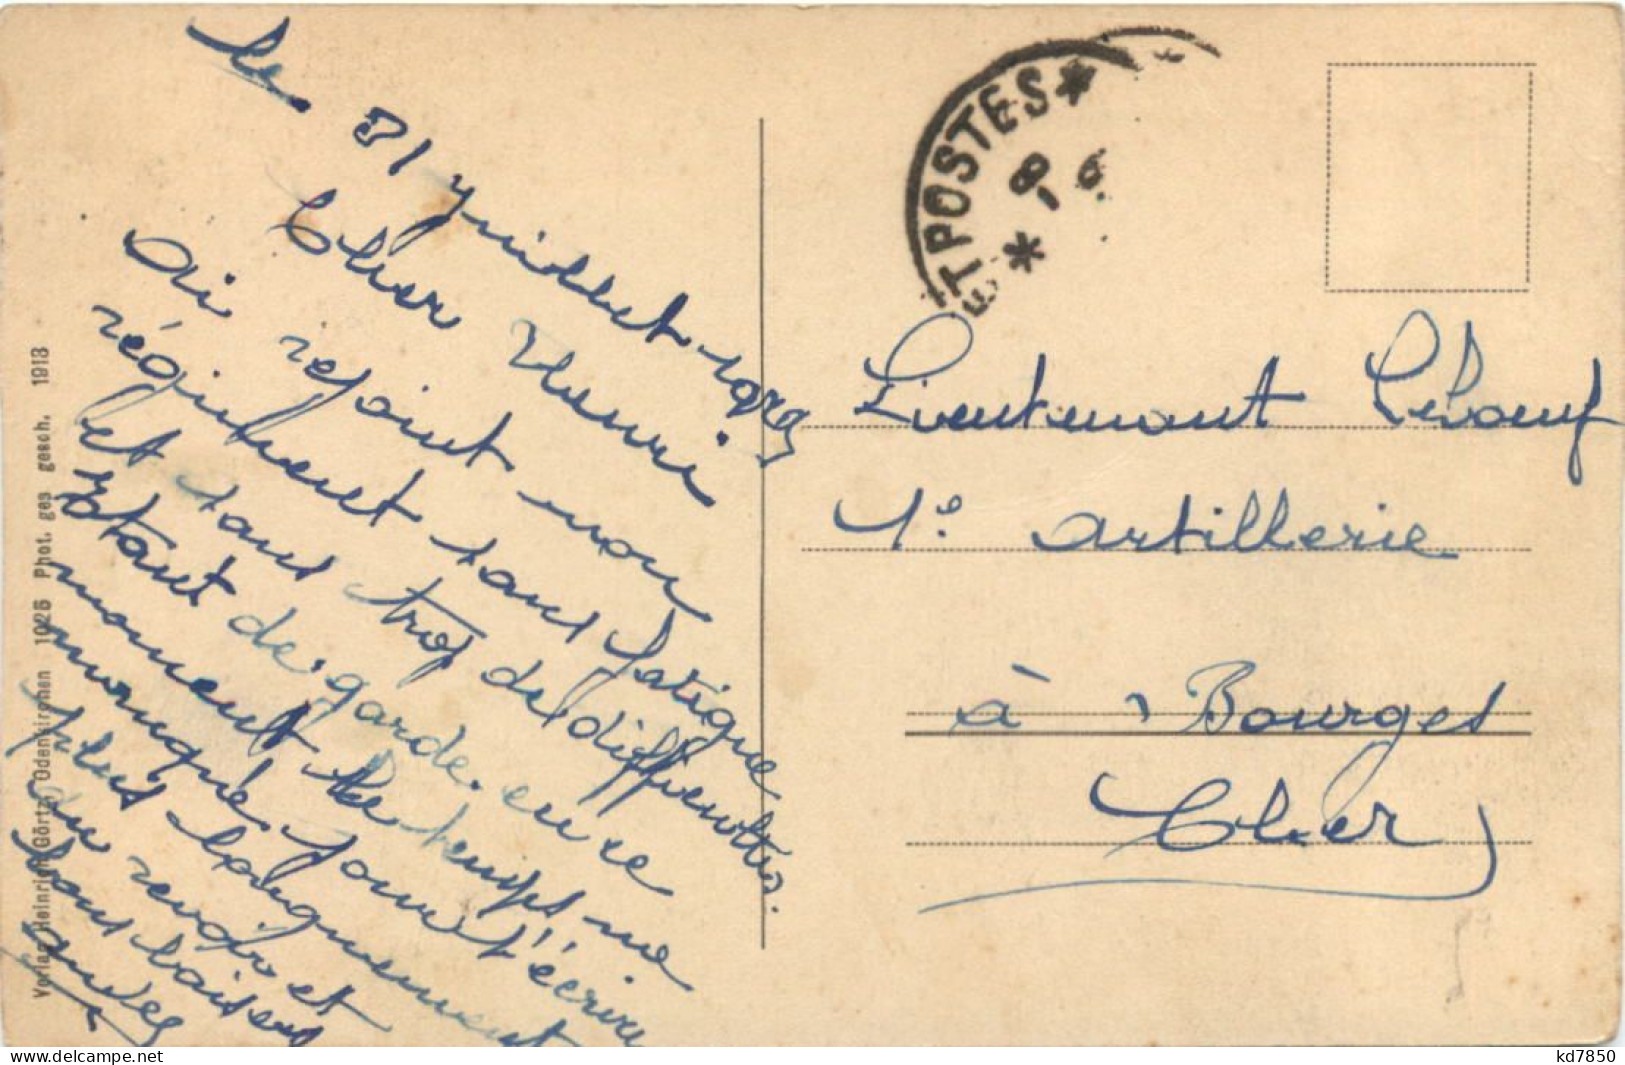 le 31 juillet
Cher Henri
ai rejoint mon
régiment sans fatigue
et sans trop de difficultés.
étant de garde en ce
moment le temps me
manque pour t'écrire
plus longuement
au revoir et
bons baisers
Verlag Heinrich Görtz, Odenkirchen 1926 Phot. ges gesch. 1918
ET POSTES *
* 8-6
Lieutenant Leboeuf
1e artillerie
à Bourges
Cher
www.delcampe.net
kd7850